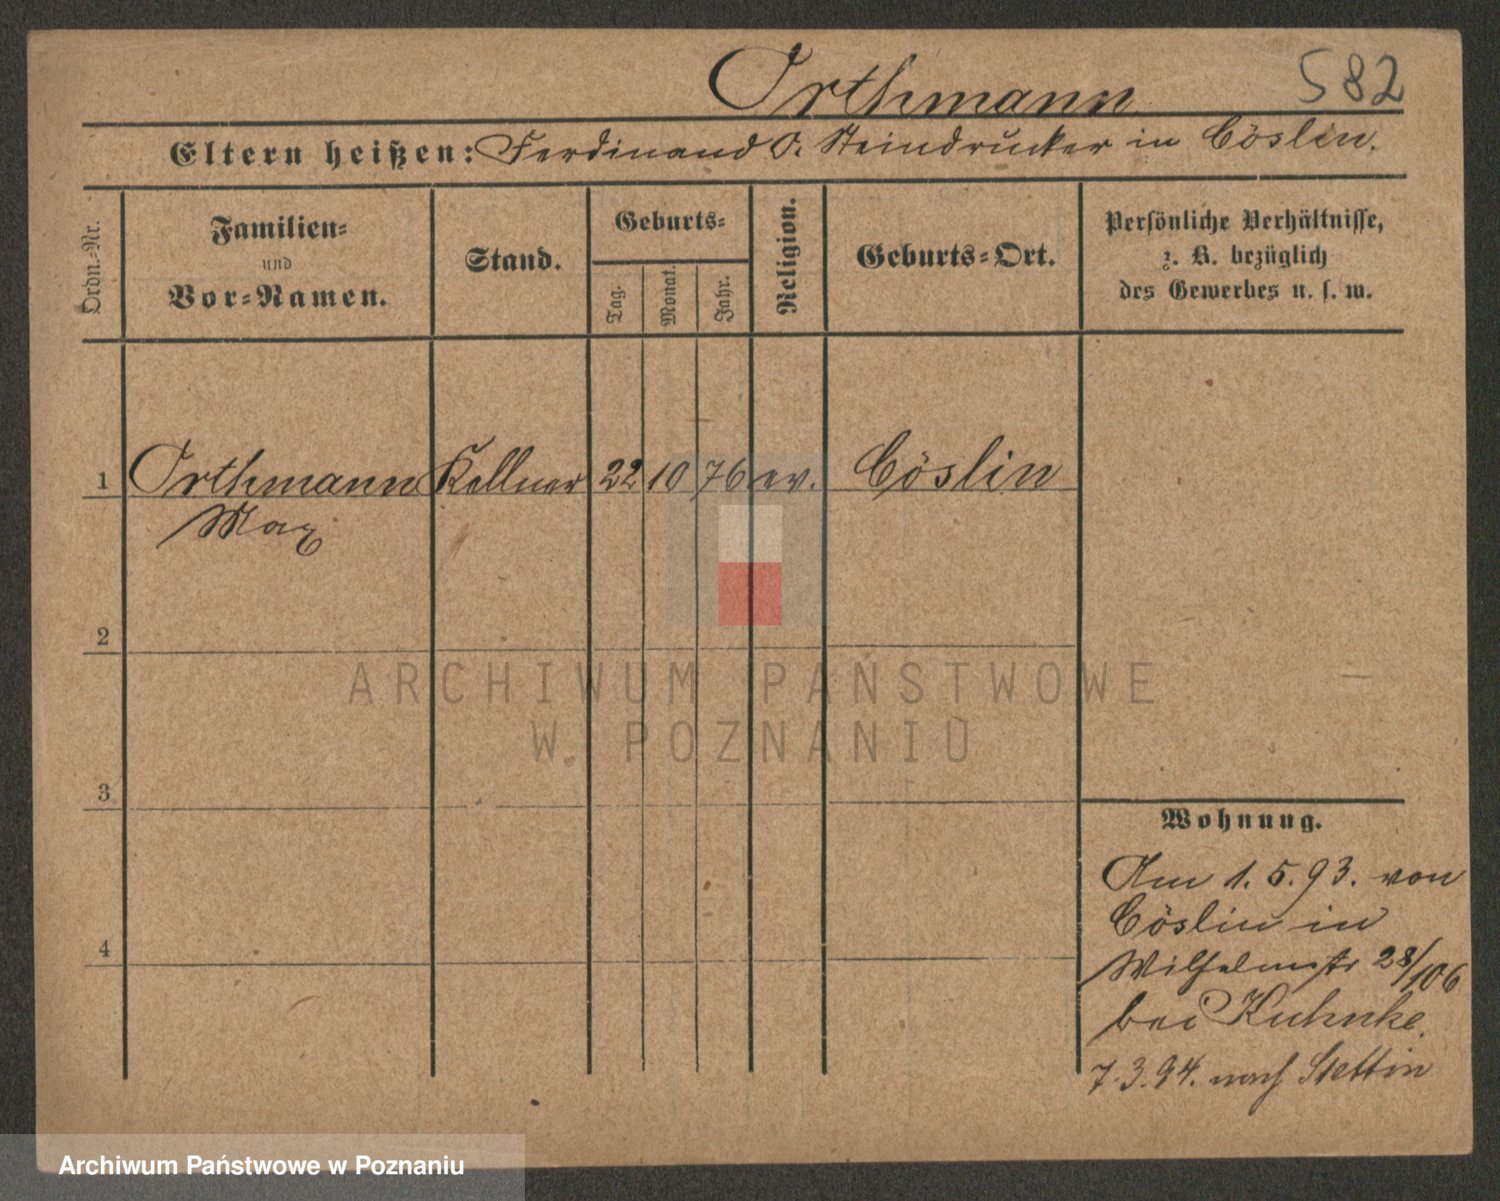 Orthmann 582
Eltern heißen: Ferdinand O. Steindrucker in Cöslin.
Ordn.-Nr.
Familien-
und
Vor-Namen.
Stand.
Geburts-
Tag.
Monat.
Jahr.
Religion.
Geburts-Ort.
Persönliche Verhältnisse,
z. B. bezüglich
des Gewerbes u. s. w.
1 Orthmann Kellner 22 10 76 ev. Cöslin
Max
2
ARCHIWUM PAŃSTWOWE
W POZNANIU
3
4
Wohnung.
Am 1.5.93. von
Cöslin in
Wilhelmstr 28/106
bei Kuhnke.
7.3.94. nach Stettin
Archiwum Państwowe w Poznaniu